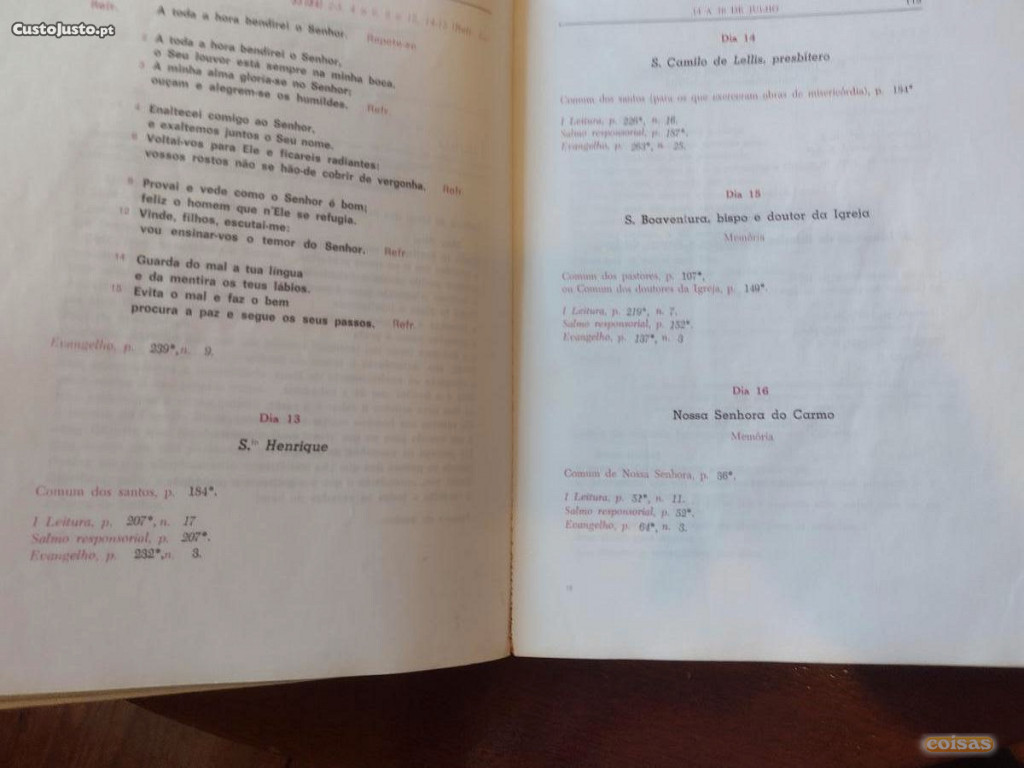 CustoJusto.pt
Refr.
A toda a hora bendirei o Senhor. Repete-se
A toda a hora bendirei o Senhor,
o Seu louvor está sempre na minha boca.
A minha alma gloria-se no Senhor;
ouçam e alegrem-se os humildes. Refr.
4 Enaltecei comigo ao Senhor,
e exaltemos juntos o Seu nome.
Voltai-vos para Ele e ficareis radiantes;
vossos rostos não se hão-de cobrir de vergonha. Refr.
9 Provai e vede como o Senhor é bom;
feliz o homem que n'Ele se refugia.
12 Vinde, filhos, escutai-me:
vou ensinar-vos o temor do Senhor. Refr.
14 Guarda do mal a tua língua
e da mentira os teus lábios.
15 Evita o mal e faz o bem
procura a paz e segue os seus passos. Refr.
Evangelho, p. 239*, n. 9.
Dia 13
S.to Henrique
Comum dos santos, p. 184*.
I Leitura, p. 207*, n. 17
Salmo responsorial, p. 207*.
Evangelho, p. 232*, n. 3.
14 A 16 DE JULHO
Dia 14
S. Camilo de Lellis, presbítero
Comum dos santos (para os que exerceram obras de misericórdia), p. 184*
I Leitura, p. 226*, n. 16.
Salmo responsorial, p. 187*.
Evangelho, p. 263*, n. 25.
Dia 15
S. Boaventura, bispo e doutor da Igreja
Memória
Comum dos pastores, p. 107*,
ou Comum dos doutores da Igreja, p. 149*.
I Leitura, p. 219*, n. 7.
Salmo responsorial, p. 152*.
Evangelho, p. 157*, n. 3
Dia 16
Nossa Senhora do Carmo
Memória
Comum de Nossa Senhora, p. 36*.
I Leitura, p. 51*, n. 11.
Salmo responsorial, p. 52*.
Evangelho, p. 64*, n. 3.
coisas